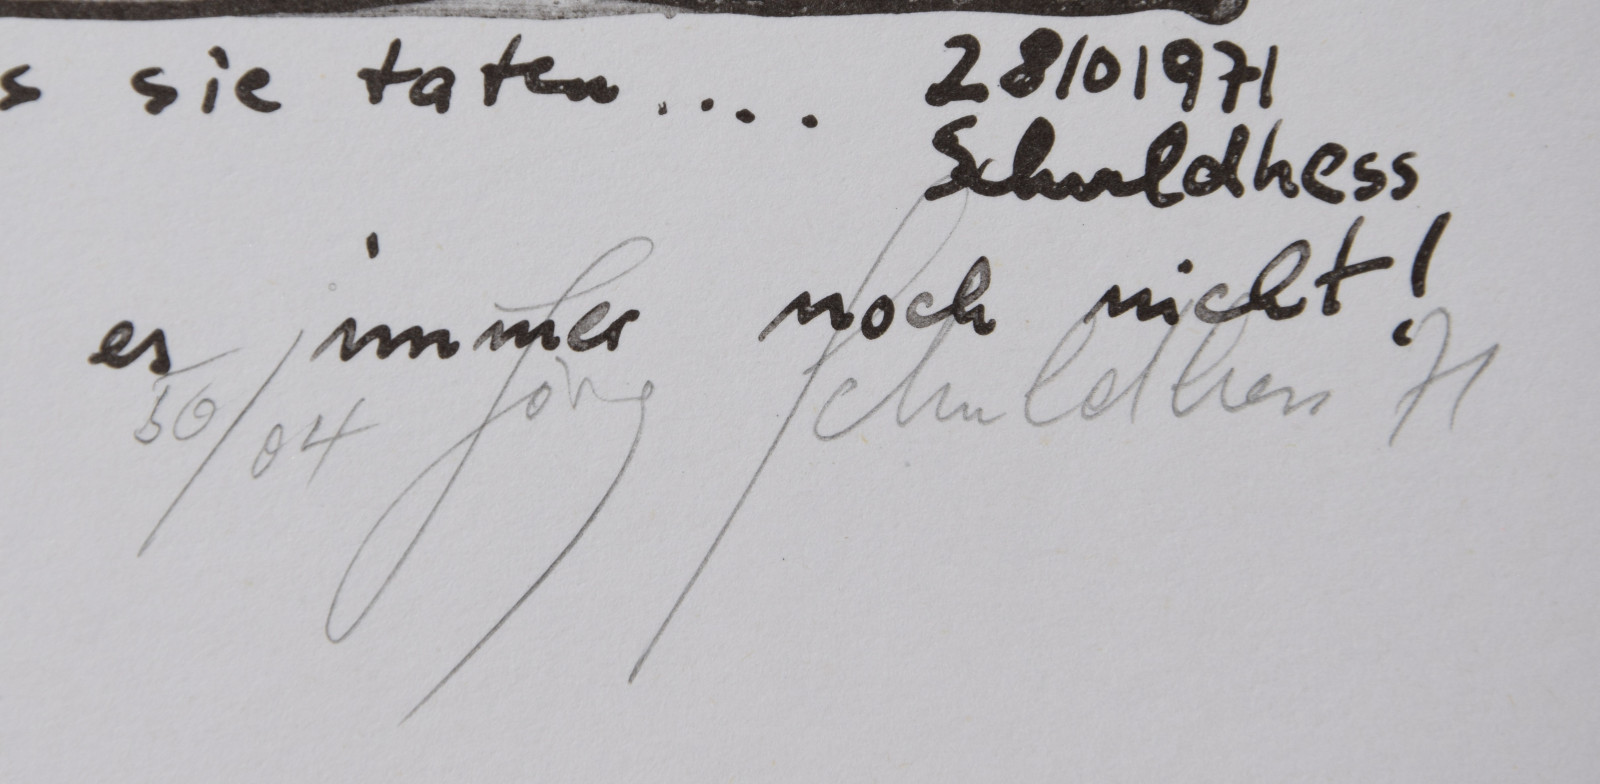 s sie taten.....
28101971
Schuldhess
es immer noch nicht!
50/04 Jörg Schuldhess 71